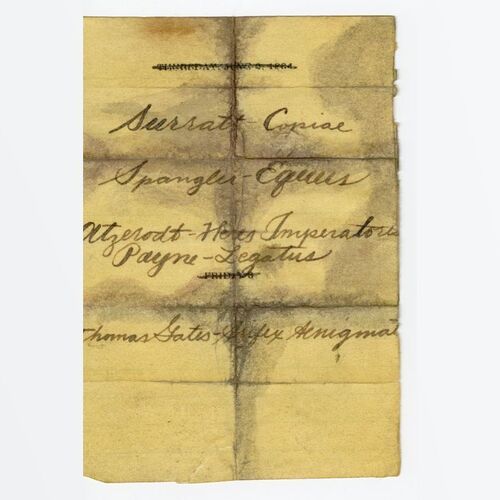 THURSDAY, JUNE 2, 1864.
Surratt - Copiae
Spangler - Equus
Atzerodt - Heres Imperatoris
Payne - Legatus
FRIDAY 3
Thomas Gates - Artifex Aenigmat